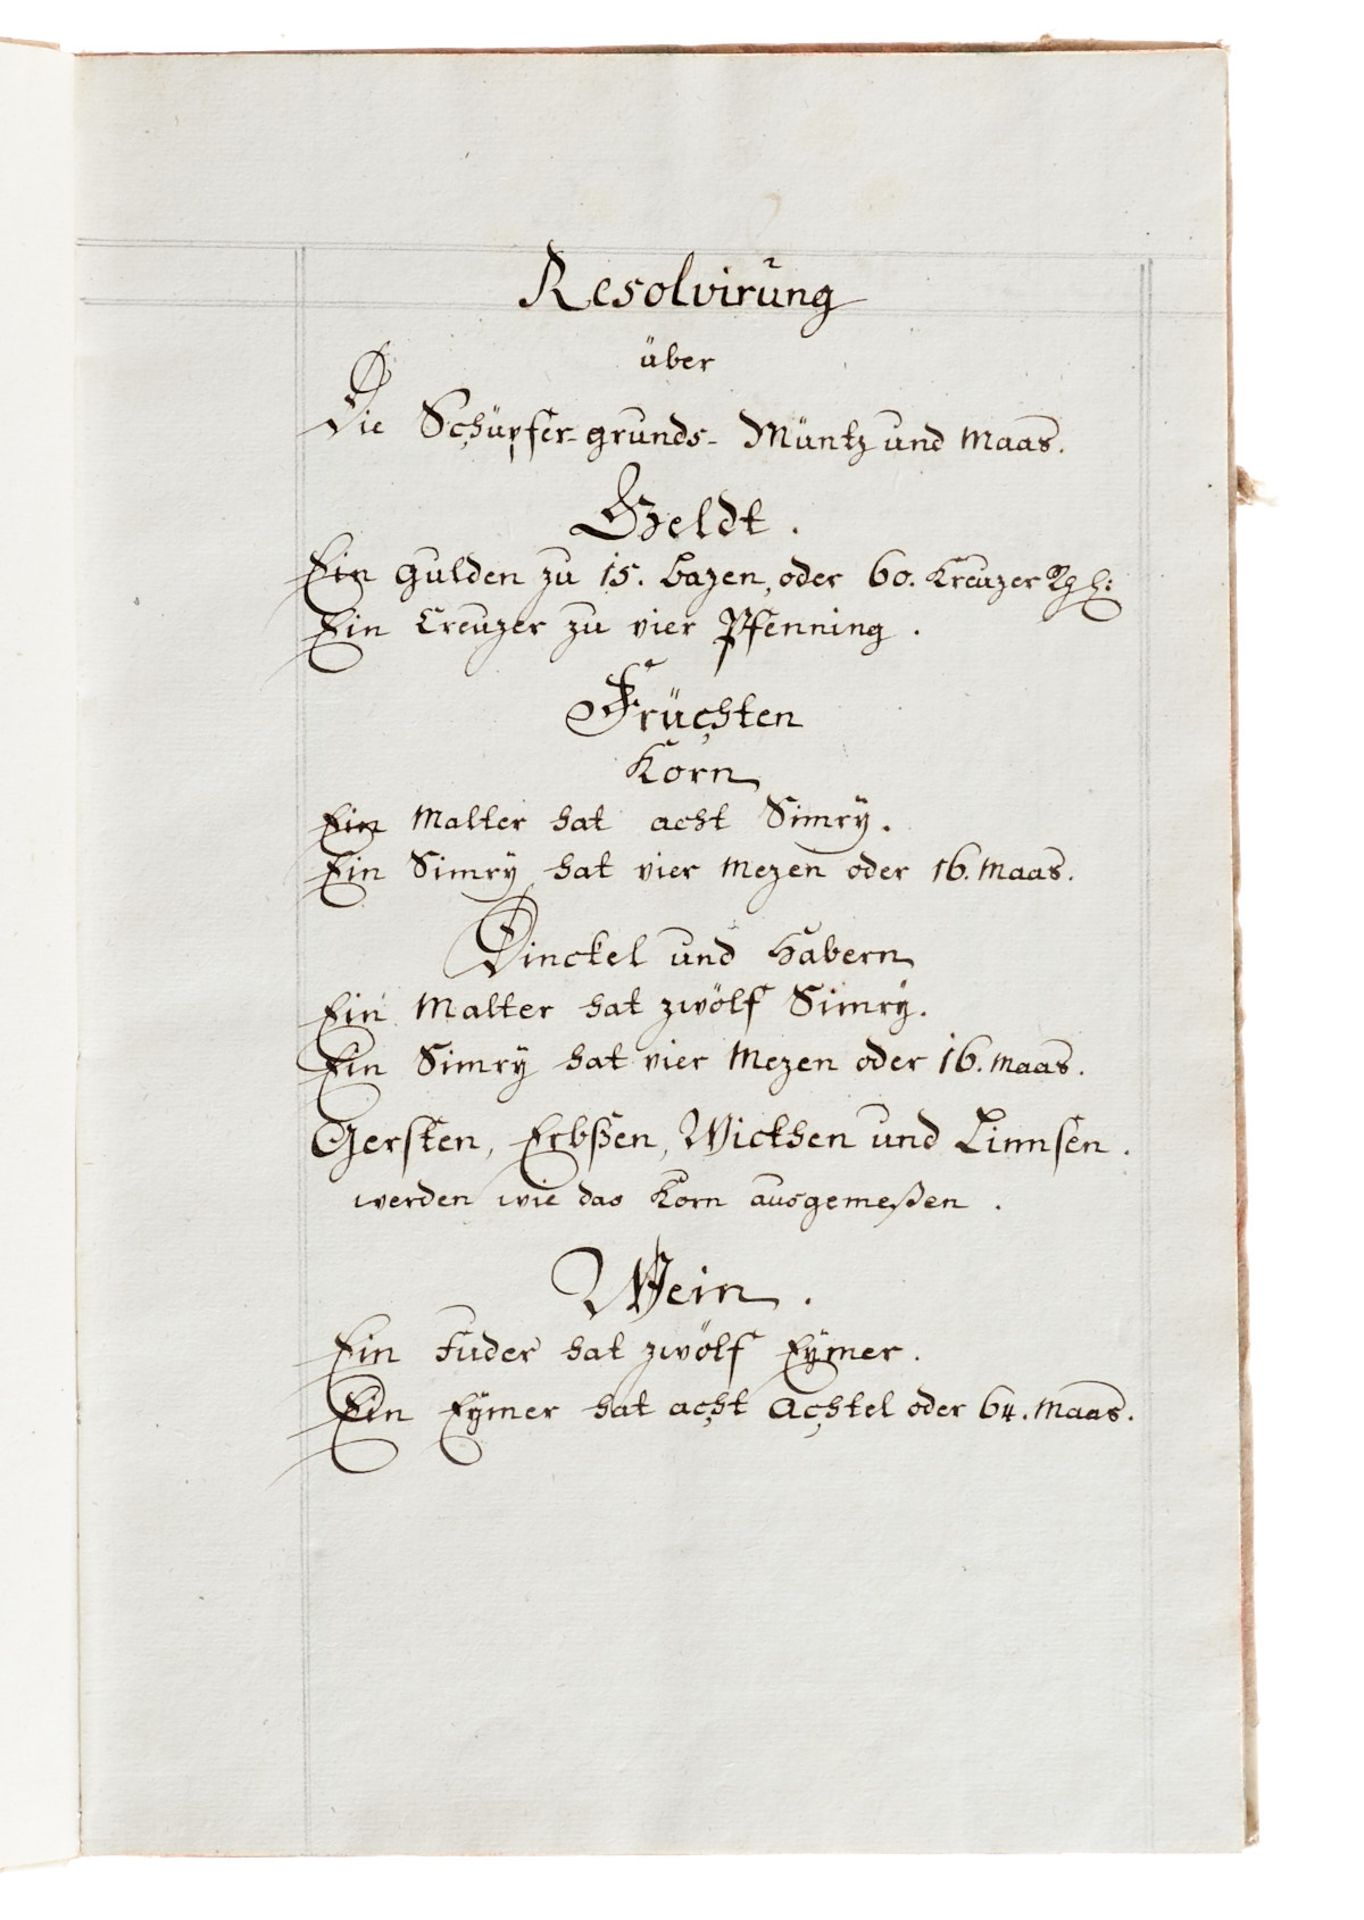 Resolvirung
über
Die Schüpfer-grunds- Müntz und Maas.
Geldt.
Ein Gulden zu 15. Bazen, oder 60. Kreuzer
Ein Creuzer zu vier Pfenning.
Früchten
Korn
Ein Malter hat acht Simrÿ.
Ein Simrÿ hat vier Mezen oder 16. Maas.
Dinckel und Habern
Ein Malter hat zwölf Simrÿ.
Ein Simrÿ hat vier Mezen oder 16. Maas.
Gersten, Erbßen, Wickhen und Linnsen.
werden wie das Korn ausgemeßen.
Wein.
Ein Fuder hat zwölf Eÿmer.
Ein Eÿmer hat acht Achtel oder 64. Maas.